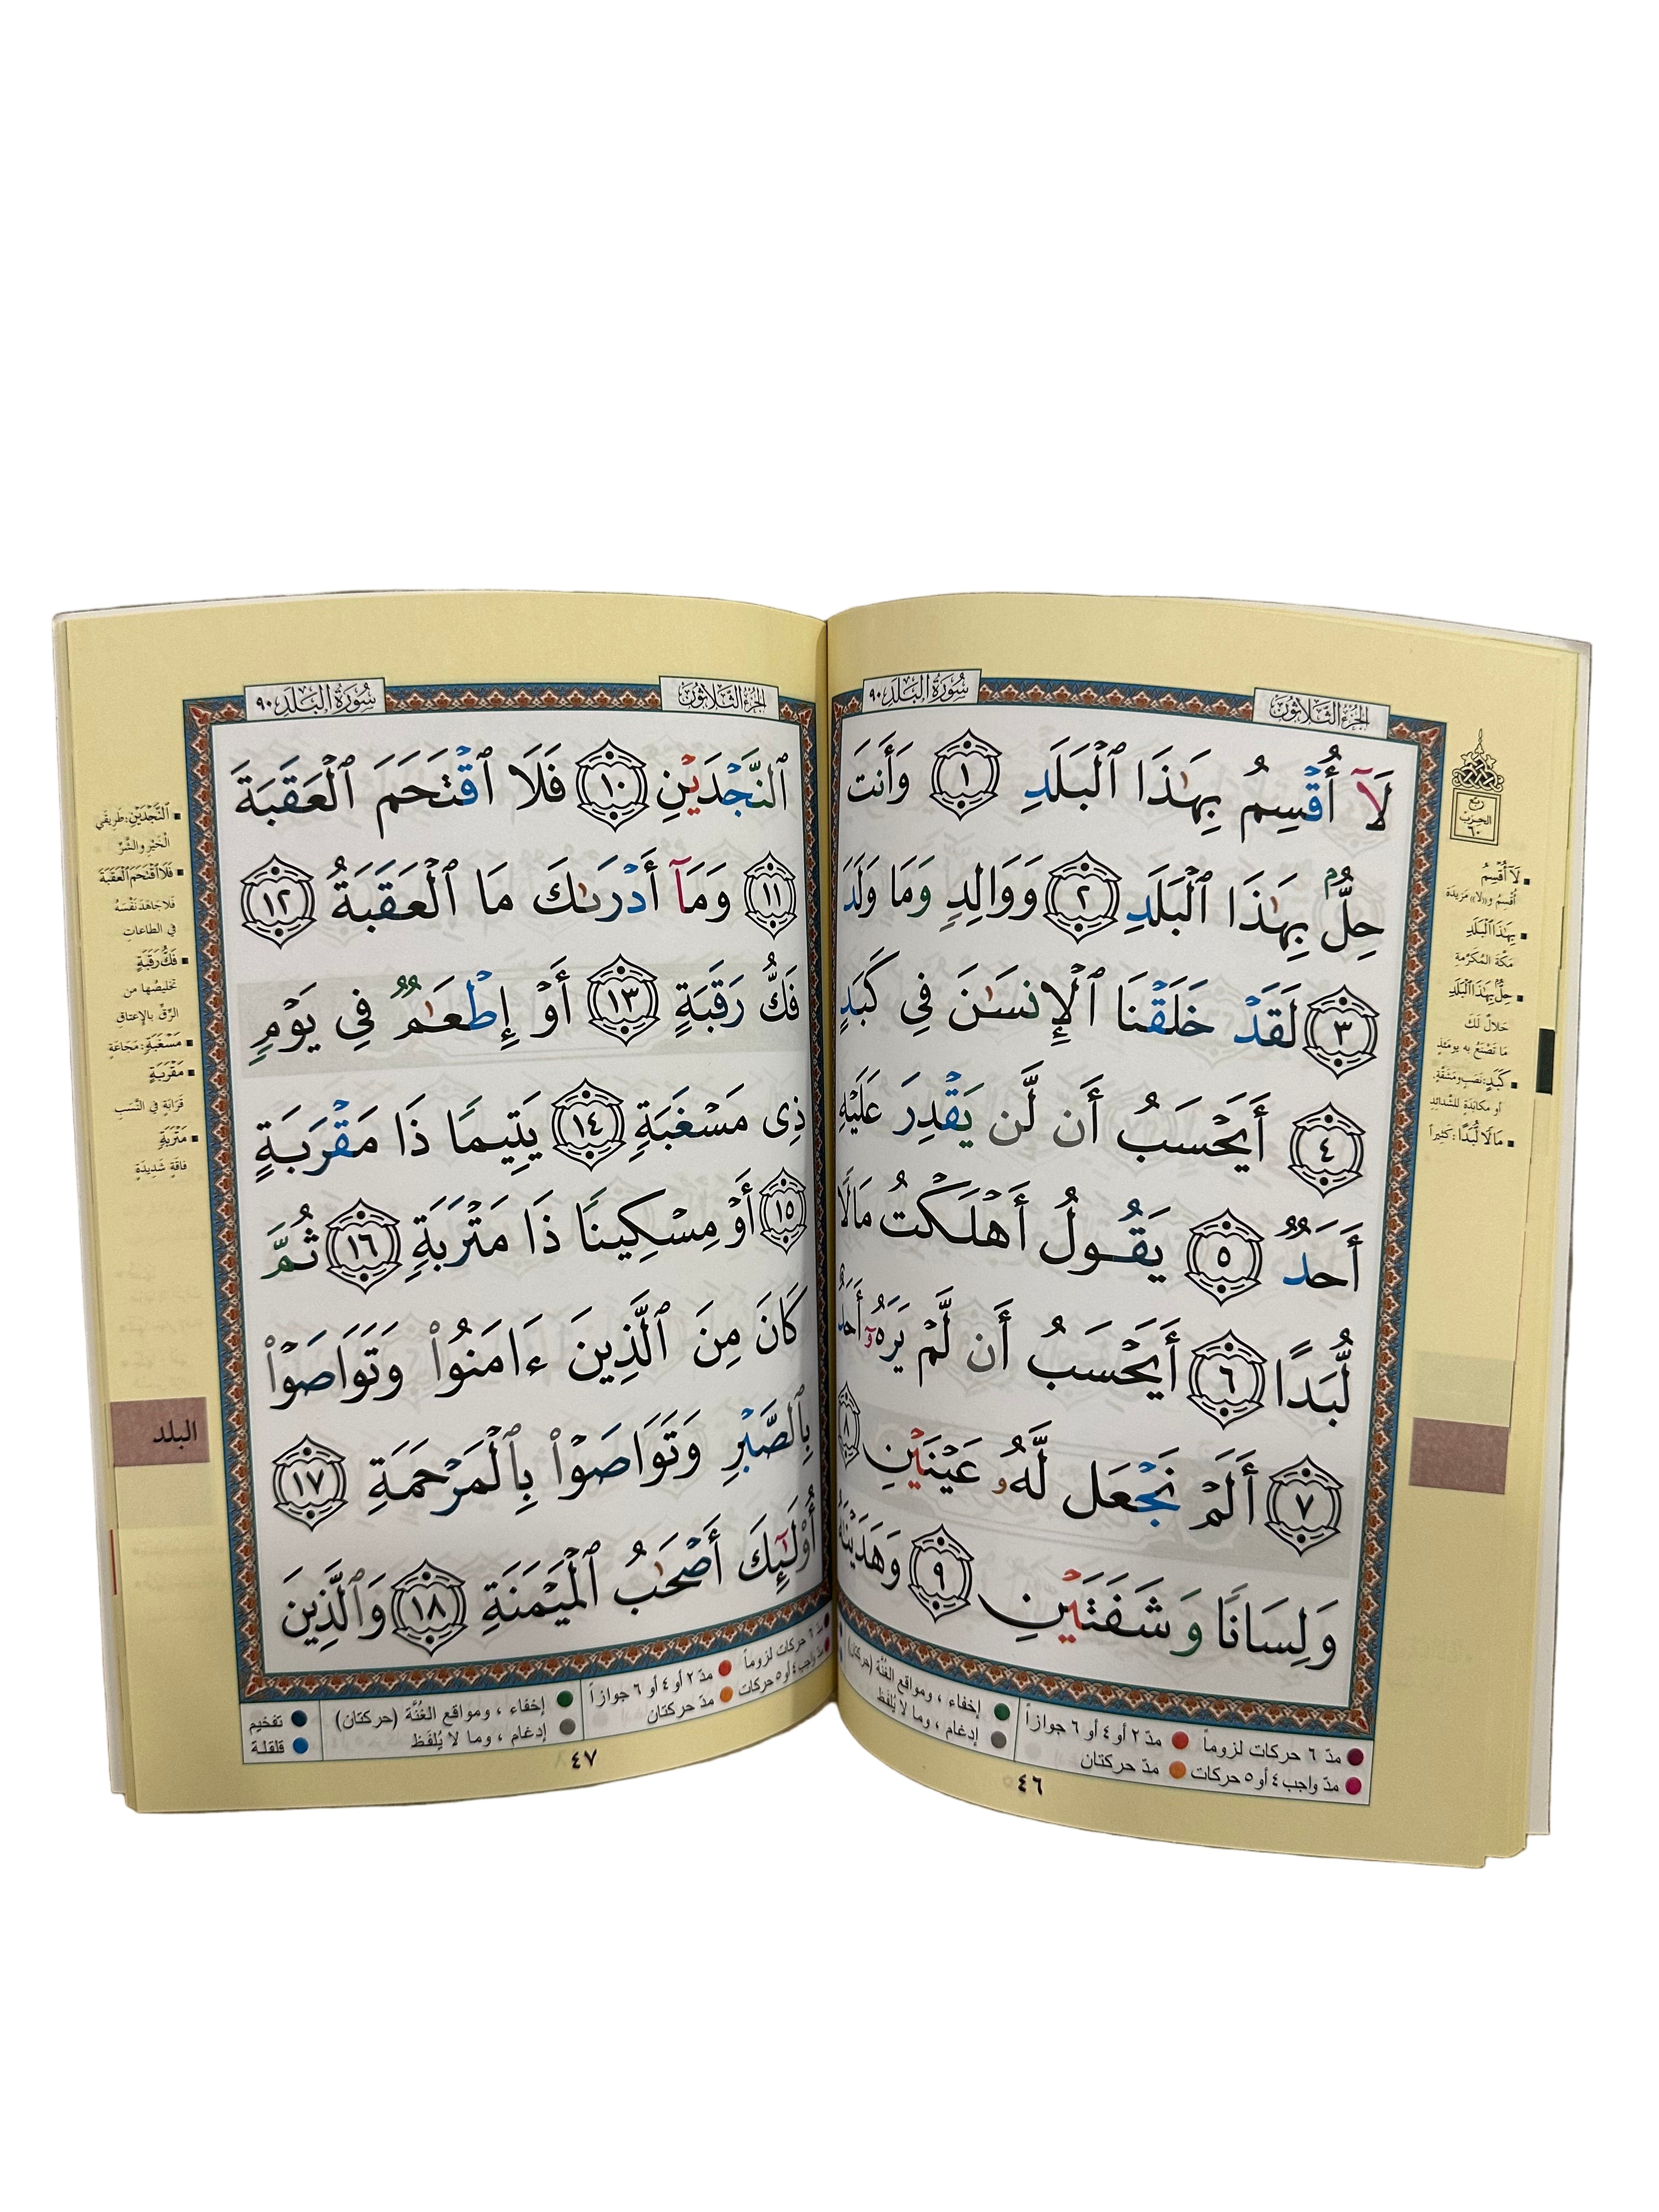 الجزء الثلاثون
سورة البلد ٩٠
لَآ أُقْسِمُ بِهَٰذَا ٱلْبَلَدِ ١ وَأَنتَ
حِلٌّۢ بِهَٰذَا ٱلْبَلَدِ ٢ وَوَالِدٍ وَمَا وَلَدَ
٣ لَقَدْ خَلَقْنَا ٱلْإِنسَٰنَ فِي كَبَدٍ
٤ أَيَحْسَبُ أَن لَّن يَقْدِرَ عَلَيْهِ
أَحَدٌ ٥ يَقُولُ أَهْلَكْتُ مَالًا
لُّبَدًا ٦ أَيَحْسَبُ أَن لَّمْ يَرَهُۥٓ أَحَدٌ
٧ أَلَمْ نَجْعَل لَّهُۥ عَيْنَيْنِ ٨
وَلِسَانًا وَشَفَتَيْنِ ٩ وَهَدَيْنَٰهُ
ربع
الحزب
٦٠
لَآ أُقْسِمُ
أُقْسِمُ و«لا» مَزيدَة
بِهَٰذَا ٱلْبَلَدِ
مَكّة المُكرّمة
حِلٌّۢ بِهَٰذَا ٱلْبَلَدِ
حَلالٌ لَكَ
مَا تَصْنَعُ به يومَئذٍ
كَبَدٍ: نَصَبٍ ومَشقّةٍ.
أو مكابَدَةٍ للشّدائِدِ
مَالًا لُّبَدًا: كَثِيراً
مدّ ٦ حركات لزوماً
مدّ ٢ أو ٤ أو ٦ جوازاً
إخفاء ، ومواقع الغُنَّة (حركتان)
مدّ واجب ٤ أو ٥ حركات
مدّ حركتان
إدغام ، وما لا يُلفَظ
٤٦
الجزء الثلاثون
سورة البلد ٩٠
ٱلنَّجْدَيْنِ ١٠ فَلَا ٱقْتَحَمَ ٱلْعَقَبَةَ
١١ وَمَآ أَدْرَىٰكَ مَا ٱلْعَقَبَةُ ١٢
فَكُّ رَقَبَةٍ ١٣ أَوْ إِطْعَٰمٌ فِي يَوْمٍ
ذِي مَسْغَبَةٍ ١٤ يَتِيمًا ذَا مَقْرَبَةٍ
١٥ أَوْ مِسْكِينًا ذَا مَتْرَبَةٍ ١٦ ثُمَّ
كَانَ مِنَ ٱلَّذِينَ ءَامَنُوا۟ وَتَوَاصَوْا۟
بِٱلصَّبْرِ وَتَوَاصَوْا۟ بِٱلْمَرْحَمَةِ ١٧
أُو۟لَٰٓئِكَ أَصْحَٰبُ ٱلْمَيْمَنَةِ ١٨ وَٱلَّذِينَ
ٱلنَّجْدَيْنِ: طَريقَي
الْخَيْرِ والشَّرِّ
فَلَا ٱقْتَحَمَ ٱلْعَقَبَةَ
فلا جَاهَدَ نَفْسَهُ
في الطاعاتِ
فَكُّ رَقَبَةٍ
تخليصُها من
الرِّقِّ بالإعتاقِ
مَسْغَبَةٍ: مَجَاعَةٍ
مَقْرَبَةٍ
قَرَابَةٍ في النَّسَبِ
مَتْرَبَةٍ
فاقَةٍ شَدِيدَةٍ
البلد
مدّ ٦ حركات لزوماً
مدّ ٢ أو ٤ أو ٦ جوازاً
إخفاء ، ومواقع الغُنَّة (حركتان)
تفخيم
مدّ واجب ٤ أو ٥ حركات
مدّ حركتان
إدغام ، وما لا يُلفَظ
قلقلة
٤٧